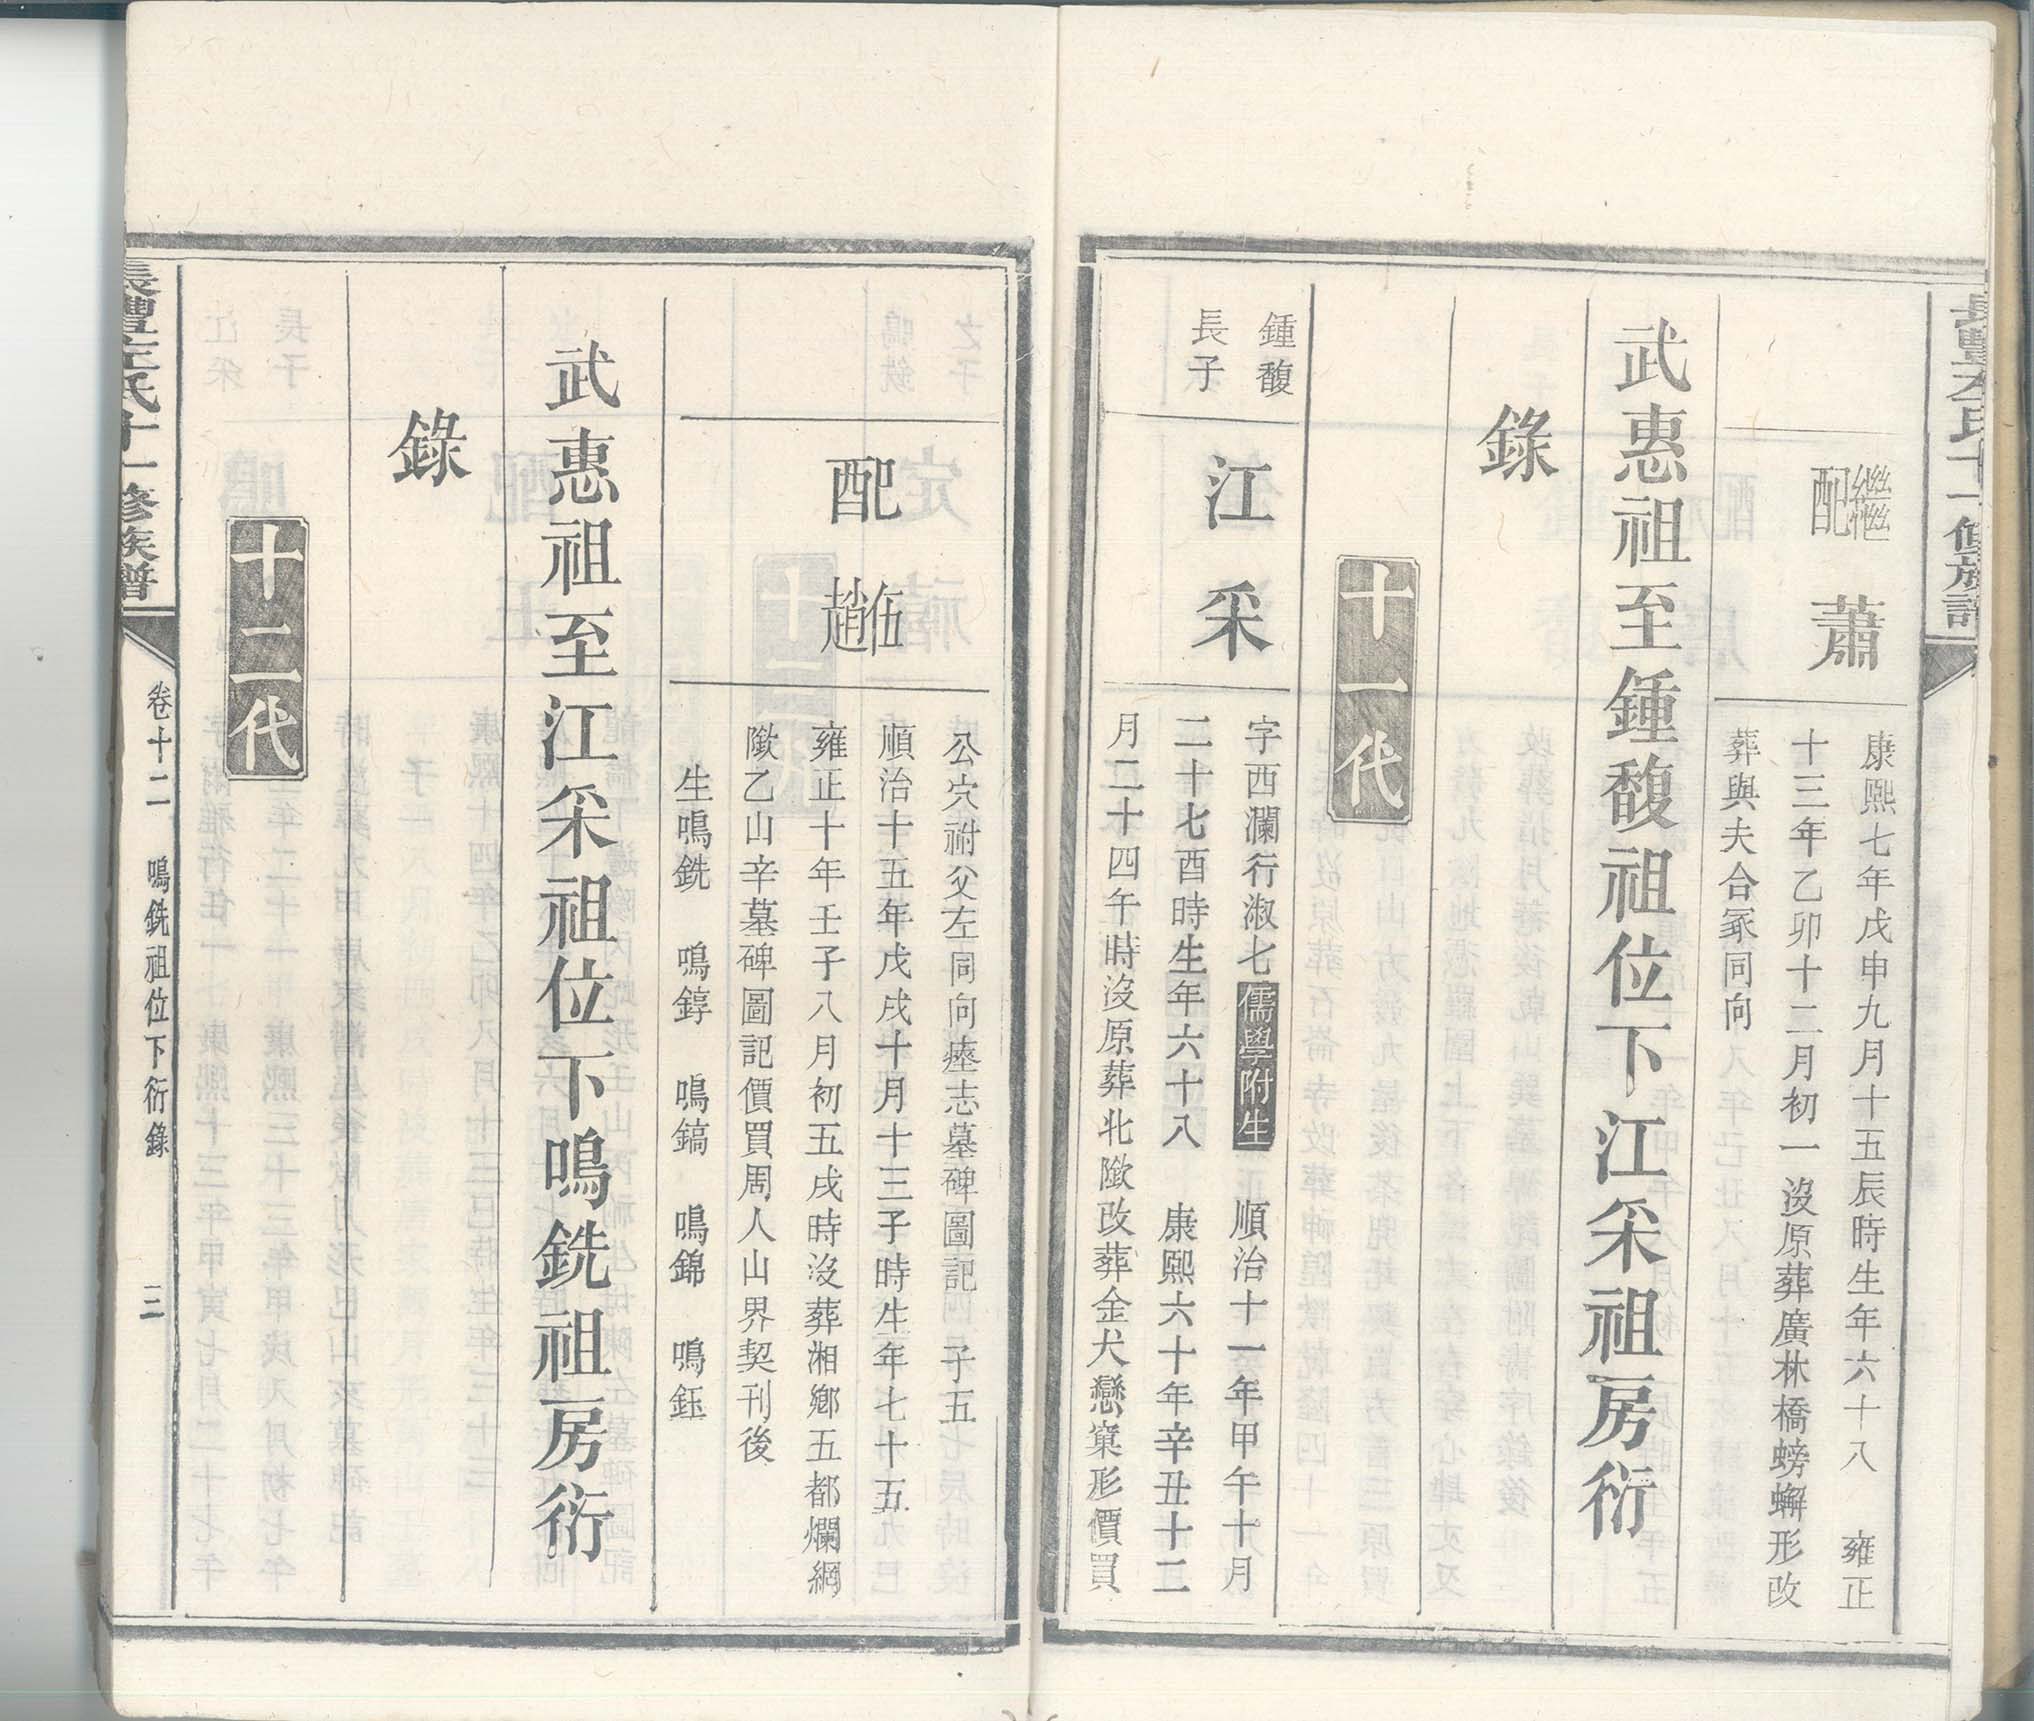 長豐左氏十一修族譜
繼配 蕭
康熙七年戊申九月十五辰時生年六十八 雍正
十三年乙卯十二月初一沒原葬廣林橋螃蠏形改
葬與夫合冢同向
武惠祖至鍾馥祖位下江采祖房衍
錄
十一代
鍾馥
長子
江采
字西瀾行淑七儒學附生 順治十一年甲午十月
二十七酉時生年六十八 康熙六十年辛丑十二
月二十四午時沒原葬北歘改葬金犬戀窠形價買
公穴祔父左同向瘞志墓碑圖記 子五
配 伍趙
順治十五年戊戌十月十三子時生年七十五
雍正十年壬子八月初五戌時沒葬湘鄉五都爛網
歘乙山辛墓碑圖記價買周人山界契刊後
生鳴銑 鳴錞 鳴鎬 鳴錦 鳴鈺
武惠祖至江采祖位下鳴銑祖房衍
錄
十二代
長豐左氏十一修族譜
卷十二 鳴銑祖位下衍錄 三